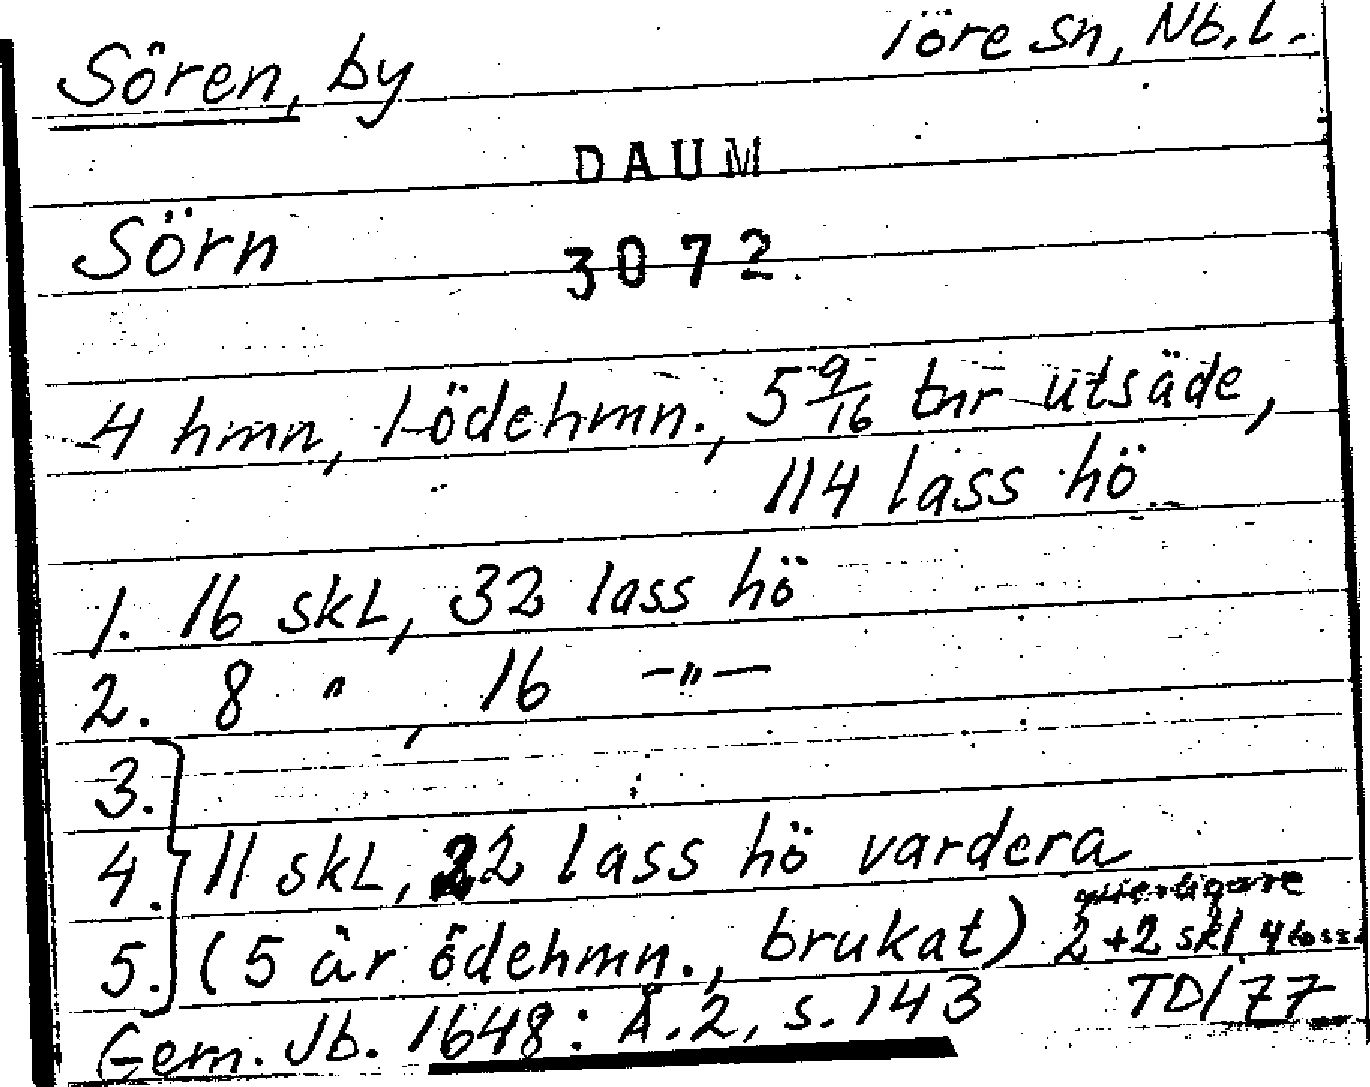 Sören, by
Töre sn, Nb.l.
DAUM
Sörn
3072
4 hmn, 1 ödehmn., 5 9/16 tnr utsäde,
114 lass hö
1. 16 skl, 32 lass hö
2. 8 " , 16 -"-
3.
4. 11 skl, 22 lass hö vardera
ytterligare
5. (5 är ödehmn., brukat) 2+2 skl 4 lass
Gem. Jb. 1648: Å.2, s.143
TD/77